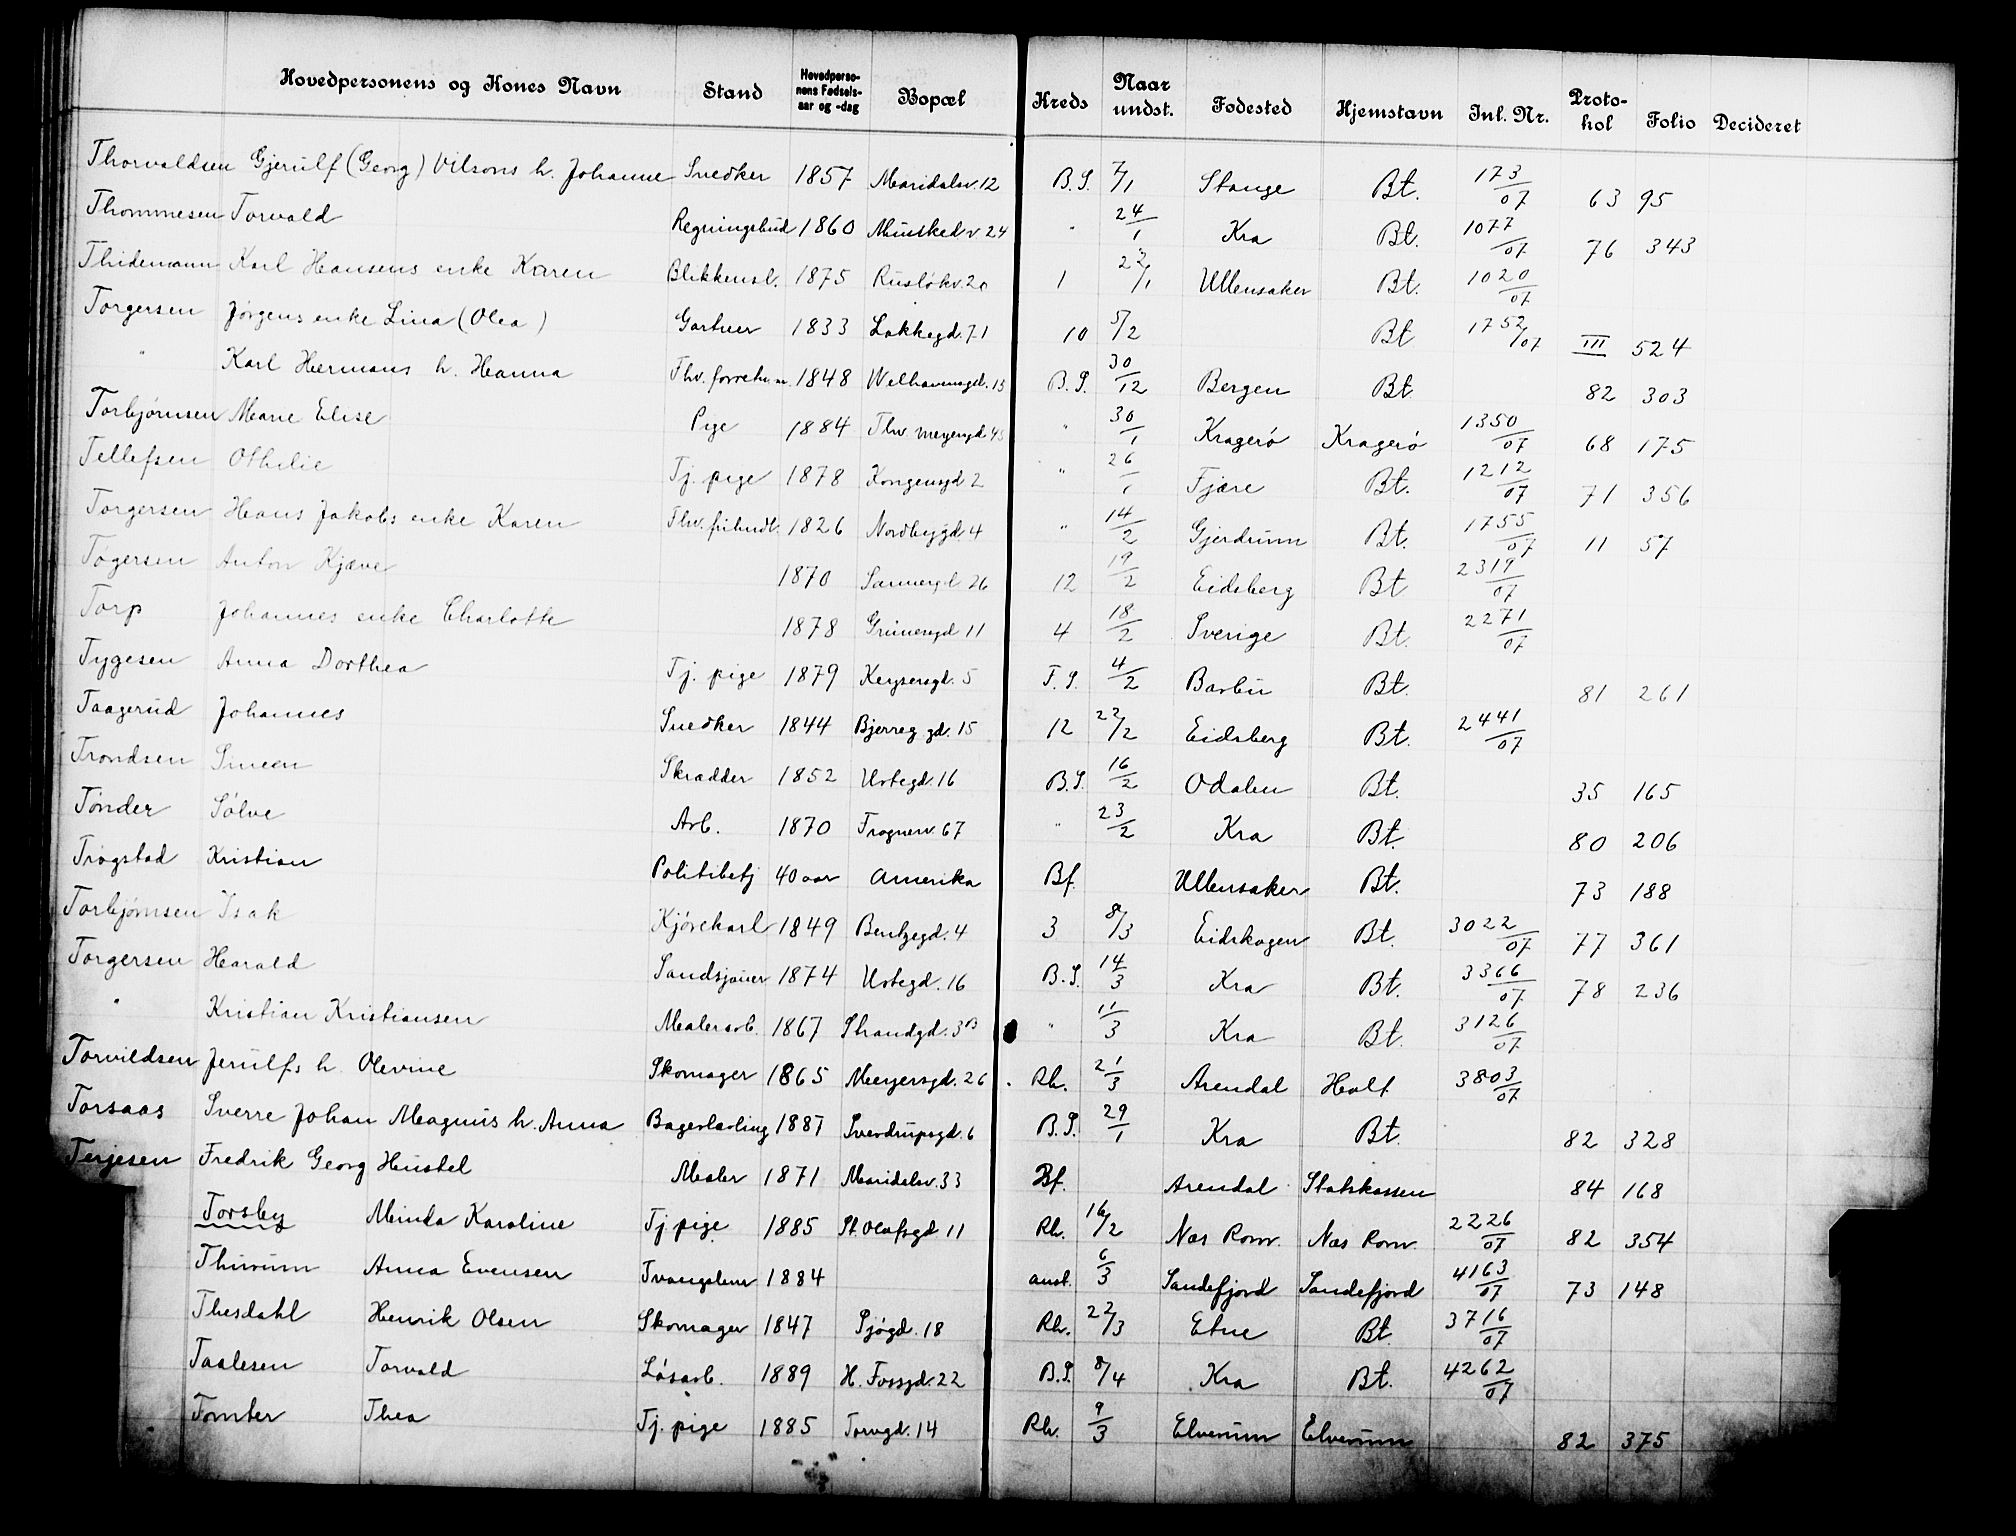 Hovedpersonens og Kones Navn Stand Hovedpersonens Fødselsaar og -dag Bopæl Kreds Naar undst. Fødested Hjemstavn Int. Nr. Protokol Folio Decideret
Thorvaldsen Gjerulf (Georg) Vilsons h. Johanne Snedker 1857 Maridalsv. 12 B.S. 7/1 Stange Bt. 173/07 63 95
Thommesen Torvald Regningsbud 1860 Munkedv. 24 " 24/1 Kra Bt. 1077/07 76 343
Thidemann Karl Hansens enke Karen Blikkensl. 1875 Rusløkv. 20 1 22/1 Ullensaker Bt. 1020/07
Torgersen Jørgens enke Lina (Olea) Gartner 1833 Lakkegd. 71 10 5/2 Bt 1752/07 III 524
" Karl Hermans h. Hanna Fhv. 1848 Welhavensgd. 13 B.S. 30/12 Bergen Bt 82 303
Torbjørnsen Marie Elise Pige 1884 Thv. Meyersgd 45 " 30/1 Kragerø Kragerø 1350/07 68 175
Tellefsen Othilie Tj. pige 1878 Kongensgd 2 " 26/1 Fjære Bt. 1212/07 71 356
Torgersen Hans Jakobs enke Karen Fhv. 1826 Nordbygd 4 " 14/2 Gjerdrum Bt. 1755/07 11 57
Togersen Anton Kjæve 1870 Sannergd 26 12 19/2 Eidsberg Bt 2319/07
Torp Johannes enke Charlotte 1878 Grünersgd 11 4 18/2 Sverige Bt. 2271/07
Tygesen Anna Dorthea Tj. pige 1879 Keysersgd. 5 F.S. 4/2 Barbu Bt. 81 261
Taagerud Johannes Snedker 1844 Bjerreg gd. 15 12 22/2 Eidsberg Bt. 2441/07
Trondsen Simeon Skrædder 1852 Urtegd. 16 B.S. 16/2 Odalen Bt. 35 165
Tønder Sølve Arb. 1870 Frognerv. 67 " 23/2 Kra Bt. 80 206
Trøgstad Kristian Politibetj 40 aar Amerika Bf. Ullensaker Bt. 73 188
Torbjørnsen Isak Kjørekarl 1849 Bentzegd. 4 3 8/3 Eidskogen Bt. 3022/07 77 361
Torgersen Harald Sandsjauer 1874 Urtegd. 16 B.S. 14/3 Kra Bt. 3366/07 78 236
" Kristian Kristiansen Malerarb. 1867 Strandgd. 3B " 11/3 Kra Bt. 3126/07
Torvildsen Jerulfs h. Olevine Skomager 1865 Meyersgd. 26 Rh. 21/3 Arendal Holt 3803/07
Torsaas Sverre Johan Magnus h. Anna Bagerlærling 1887 Sverdrupsgd. 6 B.S. 29/1 Kra Bt. 82 328
Terjesen Fredrik Georg Hustel Maler 1871 Maridalsv. 33 Bf. Arendal Statskassen 84 168
Torsby Minda Karoline Tj. pige 1885 St. Olafsgd 11 Rh. 16/2 Næs Rom. Næs Rom. 2226/07 82 354
Thurum Anna Evensen Tvangslem 1884 anst. 6/3 Sandefjord Sandefjord 4163/07 73 148
Thesdahl Henrik Olsen Skomager 1847 Sjøgd. 18 Rh. 22/3 Etne Bt. 3716/07
Taalesen Torvald Løsarb. 1889 H. Fossgd. 22 B.S. 8/4 Kra Bt. 4262/07
Tomter Thea Tj. pige 1885 Torvgd. 14 Rh. 9/3 Elverum Elverum 82 375